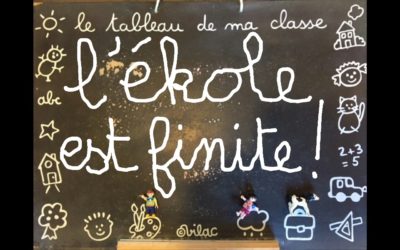 le tableau de ma classe
l'ékole
est finite !
abc
2+3
=5
Vilac